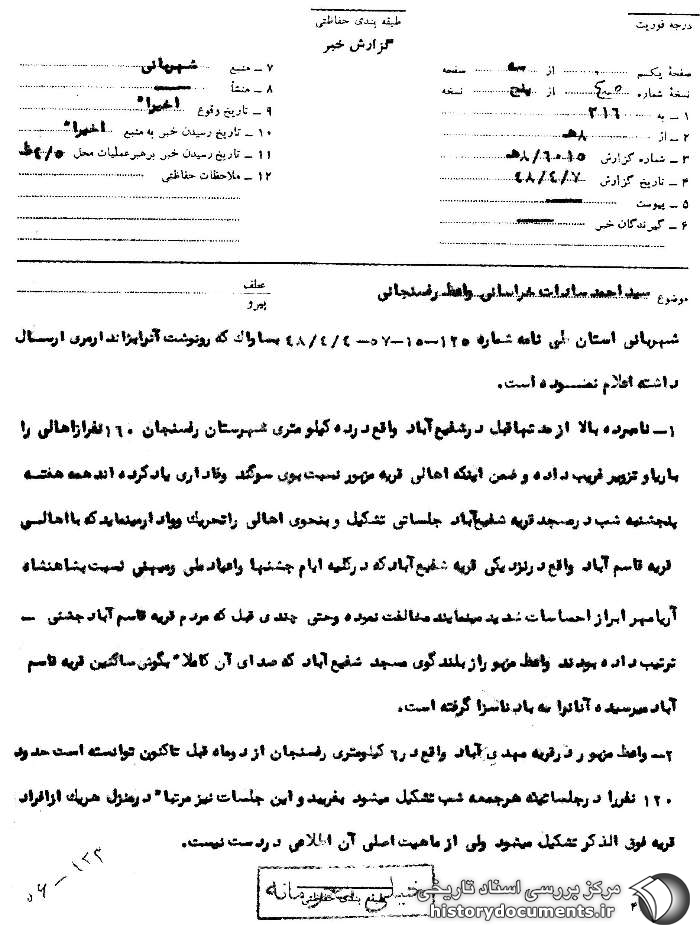 درجه فوریت
طبقه بندی حفاظتی
گزارش خبر
صفحهٔ یکم از سه صفحه
نسخهٔ شماره از پنج نسخه
۱ ـ به ۳۱۶
۲ ـ از ۸هـ
۳ ـ شماره گزارش ۸/۶۰۱۵هـ
۴ ـ تاریخ گزارش ۴۸/۴/۷
۵ ـ پیوست
۶ ـ گیرندگان خبر
۷ ـ منبع شهربانی
۸ ـ منشأ
۹ ـ تاریخ وقوع اخیرا"
۱۰ ـ تاریخ رسیدن خبر به منبع اخیرا"
۱۱ ـ تاریخ رسیدن خبر برهبر عملیات محل ۴/۵
۱۲ ـ ملاحظات حفاظتی
موضوع سید احمد سادات خراسانی واعظ رفسنجانی
عطف
پیرو
شهربانی استان طی نامه شماره ۱۲۵-۱۵-۵۷-۴۸/۴/۴ بساواک که رونوشت آنرا بژاندارمری ارسال
داشته اعلام نموده است.
۱ـ نامبرده بالا از مدتها قبل در شفیع آباد واقع در ده کیلومتری شهرستان رفسنجان ۱۶۰ نفر از اهالی را
با ریا و تزویر فریب داده و ضمن اینکه اهالی قریه مزبور نسبت بوی سوگند وفاداری یاد کرده اند همه هفته
پنجشنبه شب در مسجد قریه شفیع آباد جلساتی تشکیل و بنحوی اهالی را تحریک و وادار مینماید که با اهالی
قریه قاسم آباد واقع در نزدیکی قریه شفیع آباد که در کلیه ایام جشنها و اعیاد ملی و میهنی نسبت بشاهنشاه
آریامهر ابراز احساسات شدید مینمایند مخالفت نموده و حتی چندی قبل که مردم قریه قاسم آباد جشنی ـ
ترتیب داده بودند واعظ مزبور از بلندگوی مسجد شفیع آباد که صدای آن کاملا" بگوش ساکنین قریه قاسم
آباد میرسیده آنانرا به باد ناسزا گرفته است.
۲ـ واعظ مزبور در قریه مهدی آباد واقع در ۶ کیلومتری رفسنجان از دو ماه قبل تاکنون توانسته است حدود
۱۲۰ نفر را در جلساتیکه هر جمعه شب تشکیل میشود بفریبد و این جلسات نیز مرتبا" در منزل هر یک از افراد
قریه فوق الذکر تشکیل میشود ولی از ماهیت اصلی آن اطلاعی در دست نیست.
طبقه بندی حفاظتی
خیلی محرمانه
مرکز بررسی اسناد تاریخی
historydocuments.ir